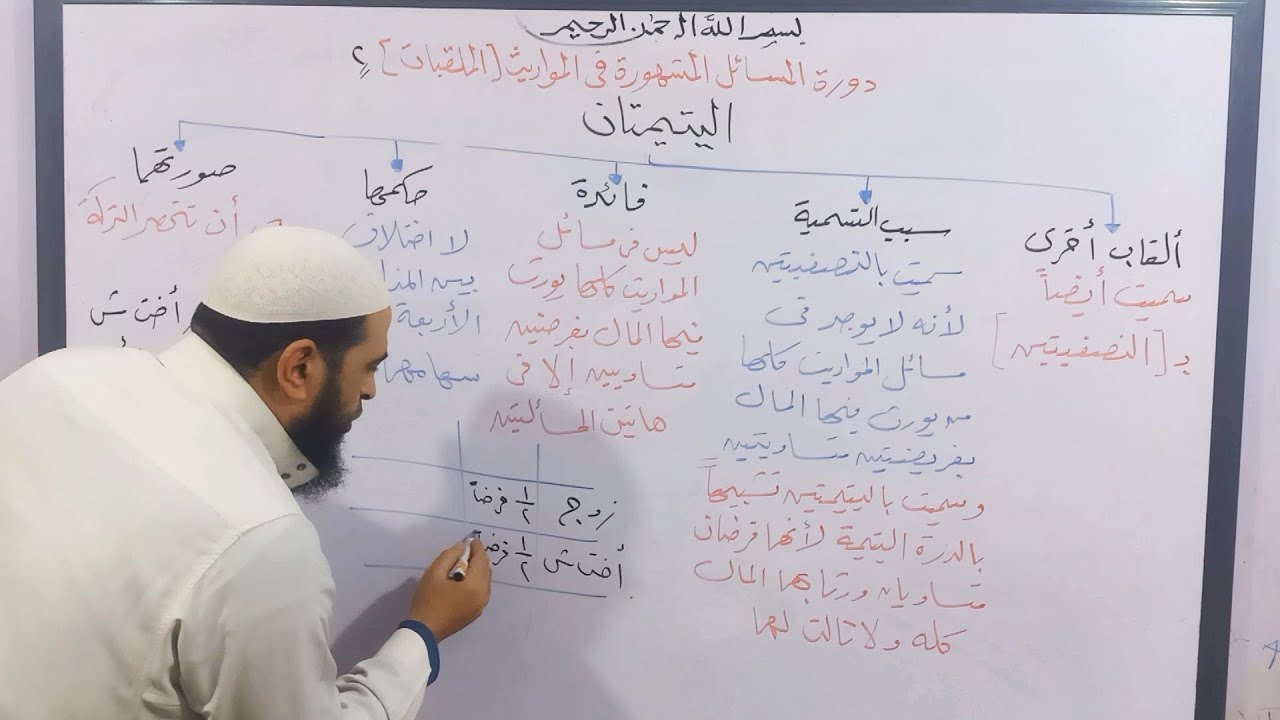 بسم الله الرحمن الرحيم
دورة المسائل المشهورة في المواريث [الملقبات] ؟
اليتيمتان
ألقاب أخرى
سميت أيضاً
بـ [النصفيتين]
سبب التسمية
سميت بالنصفيتين
لأنه لا يوجد في
مسائل المواريث كلها
من يورث فيها المال
بفريضتين متساويتين
وسميت باليتيمتين تشبيهاً
بالدرة اليتيمة لأنهما فرضان
متساويان ورثا بهما المال
كله ولا ثالث لهما
فائدة
ليس في مسائل
المواريث كلها يورث
فيها المال بفرضين
متساويين إلا في
هاتين المسألتين
حكمها
لا اختلاف
بين
الأربعة
سهامهما
صورتهما
أن تنحصر التركة
أخت ش
زوج ١/٢ فرضاً
أخت ش ١/٢